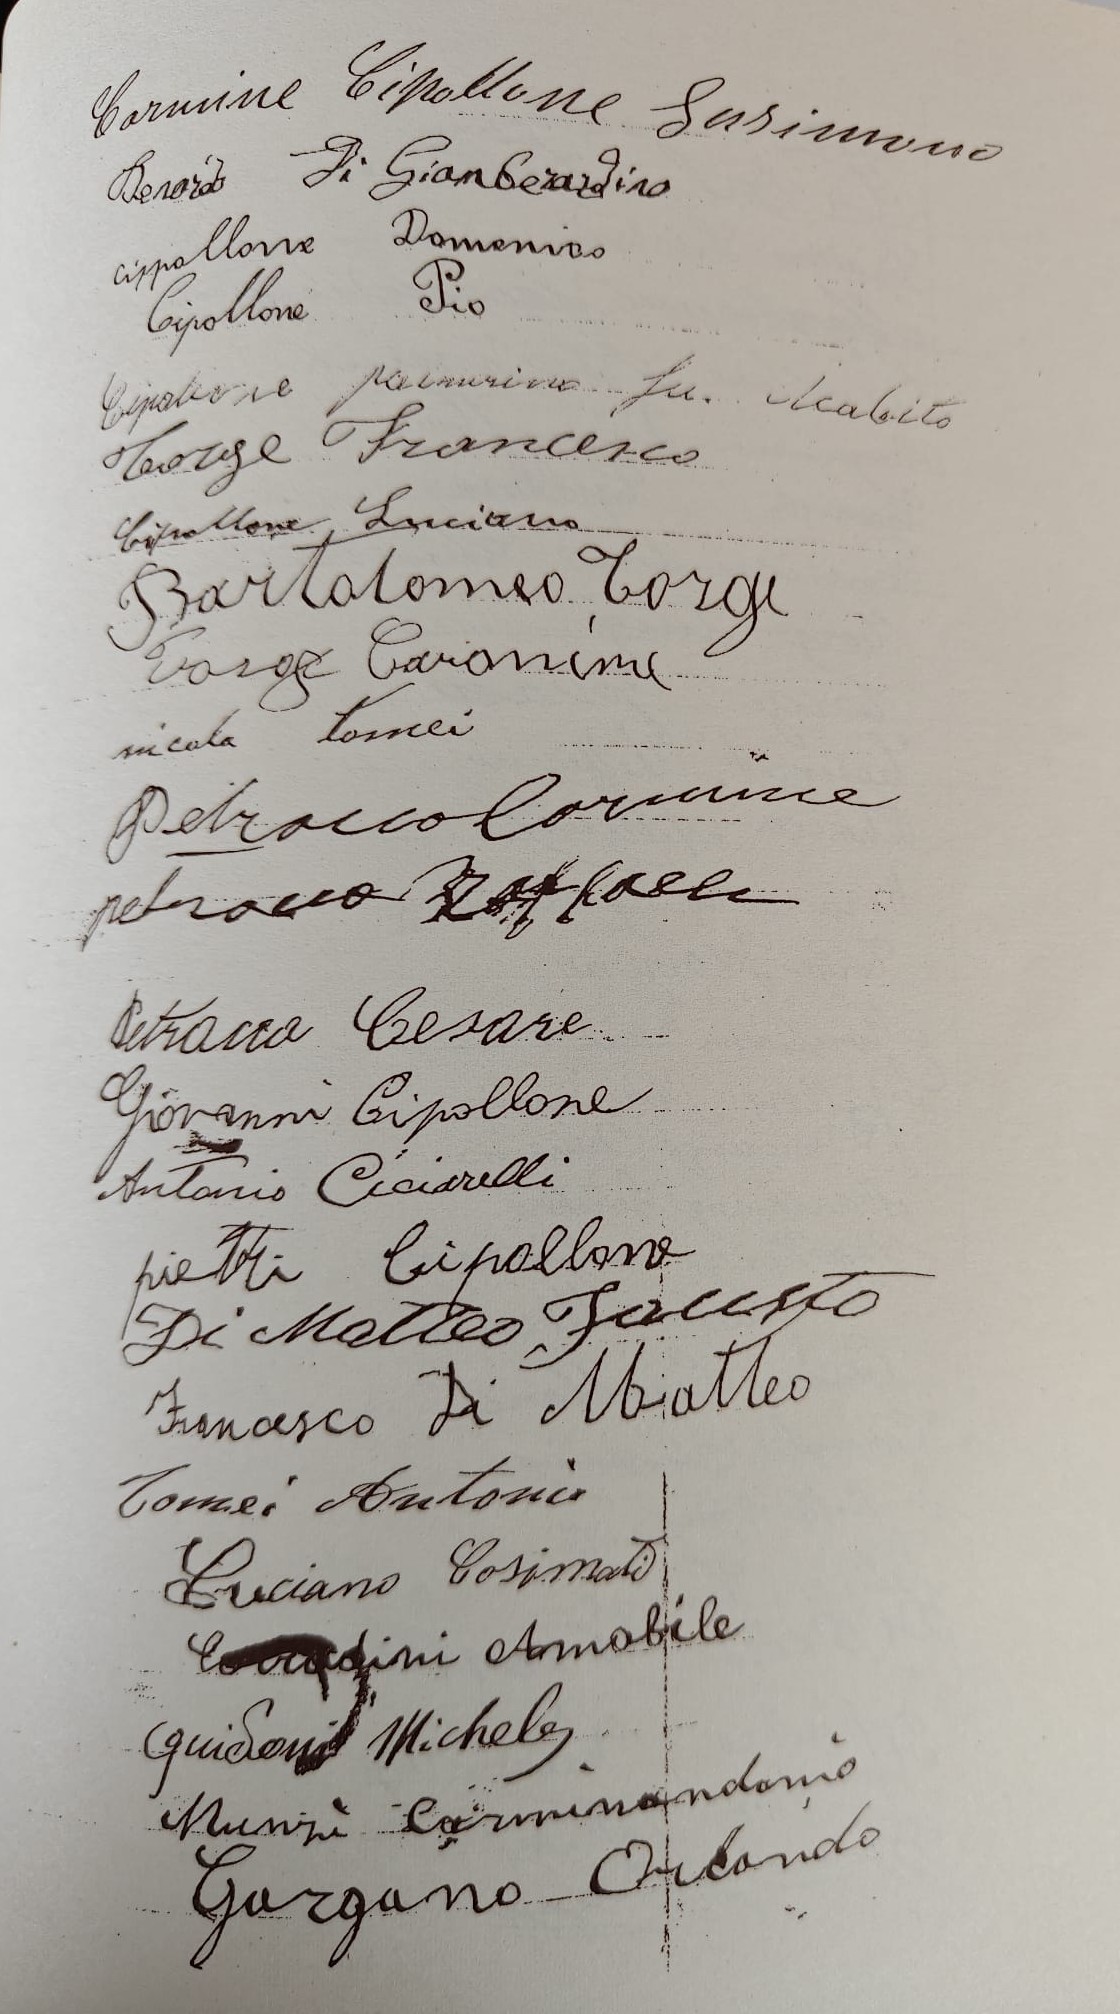 Carmine Cipollone
Berardo Di Gianberardino
cippollone Domenico
Cipollone Pio
Cipollone fu.
Torge Francesco
Cipollone Luciano
Bartolomeo Torge
Torge
nicola tomei
Petrocco Carmine
petrocco Raffaele
Petrocco Cesare
Giovanni Cipollone
Antonio Ciciarelli
Cipollone
Di Matteo Fausto
Francesco Di Matteo
Tomei Antonio
Luciano Cosimati
Amabile
Guidoni Michele
Munzi Carminandonio
Gargano Orlando